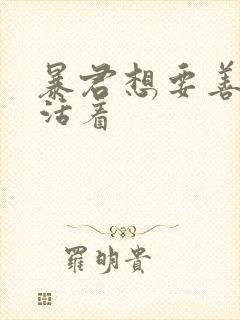 暴君想要善
活着
羅明貴